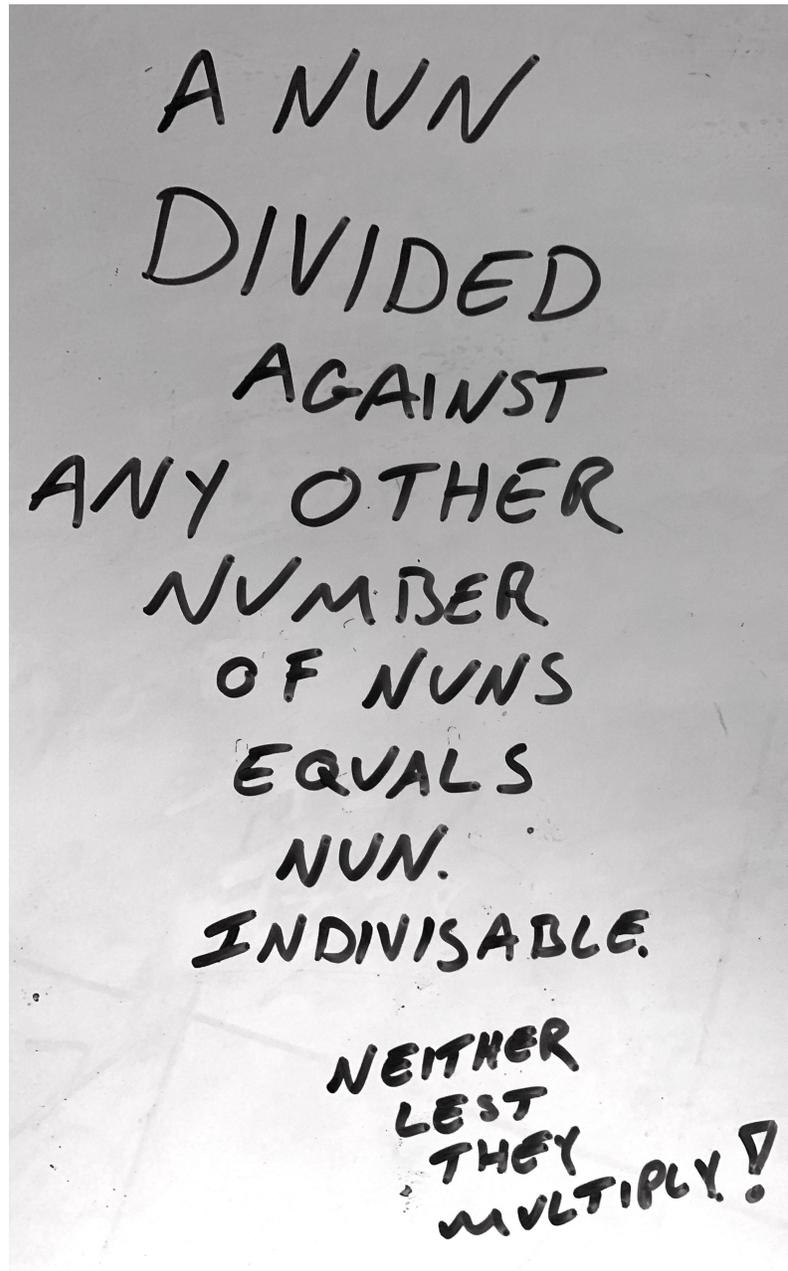 A NUN
DIVIDED
AGAINST
ANY OTHER
NUMBER
OF NUNS
EQUALS
NUN.
INDIVISABLE.
NEITHER
LEST
THEY
MULTIPLY!